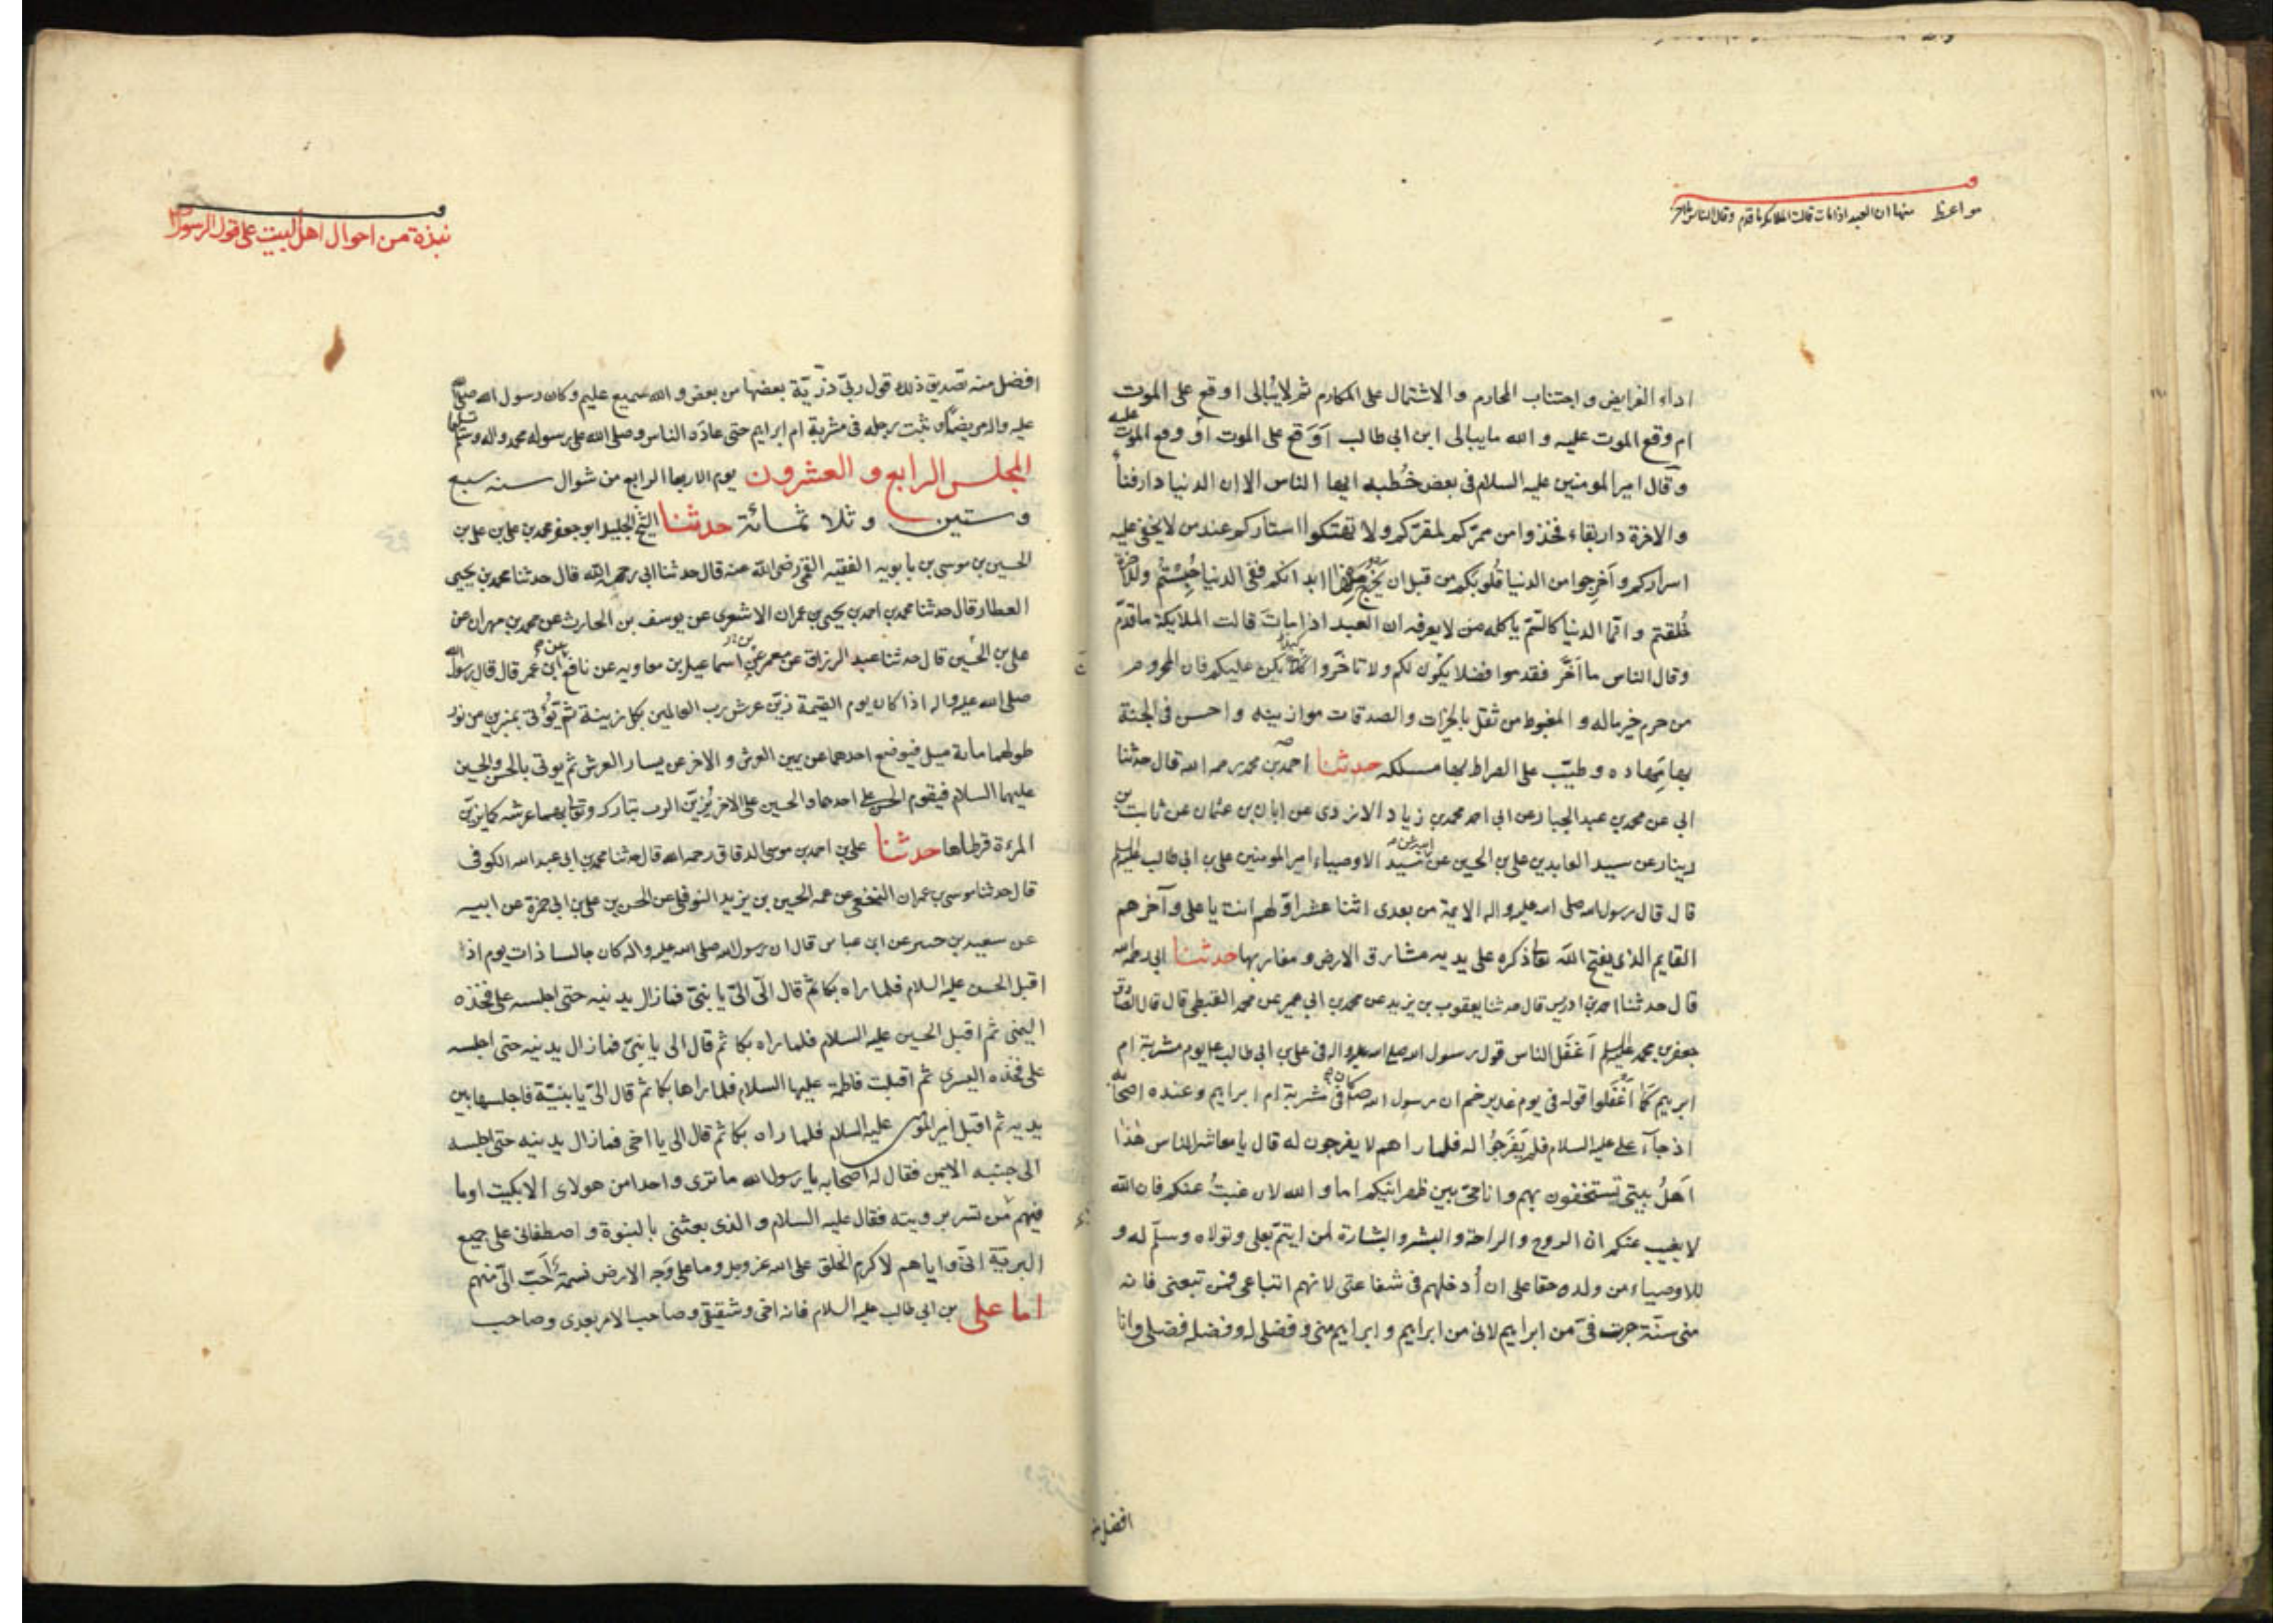 مواعظ منها ان العبد اذا مات قالت الملائكة ما قدم وقال الناس ما اخر
اداء الفرايض و اجتناب المحارم و الاشتمال على المكارم ثم لا يُبالى اوقع على الموت
ام وقع الموت عليه و الله ما يبالى ابن ابى طالب اَوَقع على الموت او وقع الموت عليه
و قال امير المومنين عليه السلام فى بعض خُطبه ايها الناس الا ان الدنيا دار فناء
و الاخرة دار بقاء فخذوا من ممرّكم لمقرّكم و لا تهتكوا استاركم عند من لا يخفى عليه
اسراركم و اَخرِجوا من الدنيا قُلوبكم من قبل ان يخرج منها ابدانكم ففى الدنيا حُبِستُم وللاخرة
خُلقتم و انّما الدنيا كالسّم ياكله من لا يعرفه ان العبد اذا ماتَ قالت الملايكة ما قدّم
و قال الناس ما اَخّر فقدموا فضلا يكون لكم ولا تاخّروا كلا يكن عليكم فان المحروم
من حرم خير ماله و المغبوط من ثقل بالخيرات والصدقات موازينه و احسن فى الجنة
بها مِهاده و طيّب على الصراط بها مسلكه حدثنا احمد بن محمد رحمه الله قال حدثنا
ابى عن محمد بن عبد الجبار عن ابى احمد محمد بن زياد الازدى عن ابان بن عثمان عن ثابت بن
دينار عن سيد العابدين على بن الحسين عن سيد الاوصياء امير المومنين على بن ابى طالب عليه السلم
قال قال رسول الله صلى الله عليه واله الايمة من بعدى اثنا عشر اوّلهم انت يا على و آخرهم
القايم الذى يفتح الله تعا ذكره على يديه مشارق الارض و مغاربها حدثنا ابى رحمه الله
قال حدثنا احمد بن ادريس قال حدثنا يعقوب بن يزيد عن محمد بن ابى عمير عن محمد القبطى قال قال الصادق
جعفر بن محمد عليه السلم اَغفَل الناس قول رسول الله صلى الله عليه واله فى على بن ابى طالب ع يوم مشربة ام
ابرهيم كما اَغفَلوا قوله فى يوم غدير خم ان رسول الله ص كان فى مشربة ام ابراهيم و عنده اصحابه
اذ جآء على عليه السلام فلم يَفرَجُوا له فلما راهم لا يفرجون له قال يا معاشر الناس هذا
اَهلُ بيتى تستخفون بهم و انا حىّ بين ظهرانيكم اما و الله لان غبتُ عنكم فان الله
لا يغيب عنكم ان الروح و الراحة و البشر و البشارة لمن ايتمّ بعلى و تولاه و سلّم له و
للاوصياء من ولده حقا على ان اُدخلهم فى شفاعتى لانهم اتباعى فمن تبعنى فانه
منى سنّة جرت فىّ من ابراهيم لانى من ابراهيم و ابراهيم منى و فضلى له فضل و فضله فضلى وانا
افضل منه
نبذة من احوال اهل البيت على قول الرسول ص
افضل منه تصديق ذلك قول ربىّ ذرّيّة بعضها من بعض و الله سميع عليم و كان رسول الله صلى الله
عليه واله مريضا وثبت رجله فى مشربة ام ابراهيم حتى عادَه الناس و صلى الله على رسوله محمد واله وسلم تسليما
المجلس الرابع و العشرون يوم الاربعا الرابع من شوال سنه سبع
وستين و ثلاثمائة حدثنا الشيخ الجليل ابو جعفر محمد بن على بن على بن
الحسين بن موسى بن بابويه الفقيه القمى رضى الله عنه قال حدثنا ابى رحمه الله قال حدثنا محمد بن يحيى
العطار قال حدثنا محمد بن احمد بن يحيى بن عمران الاشعرى عن يوسف بن الحارث عن محمد بن مهران عن
على بن الحسين قال حدثنا عبد الرزاق عن معمر عن اسماعيل بن معاويه عن نافع عن ابن عمر قال قال رسول الله
صلى الله عليه واله اذا كان يوم القيمة زيّن عرش رب العالمين بكل زينة ثم يُؤتى بمنبرين من نور
طولهما مائة ميل فيوضع احدهما عن يمين العرش و الاخر عن يسار العرش ثم يوتى بالحسن والحسين
عليهما السلام فيقوم الحسن على احدهما و الحسين على الاخر يُزيّن الرب تبارك وتعالى بهما عرشه كما يزيّن
المرءة قرطاها حدثنا على بن احمد بن موسى الدقاق رحمه الله قال حدثنا محمد بن ابى عبد الله الكوفى
قال حدثنا موسى بن عمران النخعى عن عمه الحسين بن يزيد النوفلى عن الحسن بن على بن ابى حمزة عن ابيه
عن سعيد بن جبير عن ابن عباس قال ان رسول الله صلى الله عليه واله كان جالسا ذات يوم اذا
اقبل الحسن عليه السلام فلما راه بكا ثم قال الىّ الىّ يا بنىّ فما زال يدنيه حتى اجلسه على فخذه
اليمنى ثم اقبل الحسين عليه السلام فلما راه بكا ثم قال الى يا بنىّ فما زال يدنيه حتى اجلسه
على فخذه اليسرى ثم اقبلت فاطمة عليها السلام فلما راها بكا ثم قال الىّ يا بنيّة فاجلسها بين
يديه ثم اقبل امير المومنين عليه السلام فلما راه بكا ثم قال الى يا اخى فما زال يدنيه حتى اجلسه
الى جنبه الايمن فقال له اصحابه يا رسول الله ما ترى واحدا من هولاى الا بكيت اوما
فيهم من تسر برويته فقال عليه السلام و الذى بعثنى بالنبوة و اصطفانى على جميع
البريّة انىّ و اياهم لاكرم الخلق على الله عز وجل و ما على وجه الارض نسمة اَحبّ الىّ منهم
اما على بن ابى طالب عليه السلام فانه اخى و شقيقى و صاحب الامر بعدى و صاحب